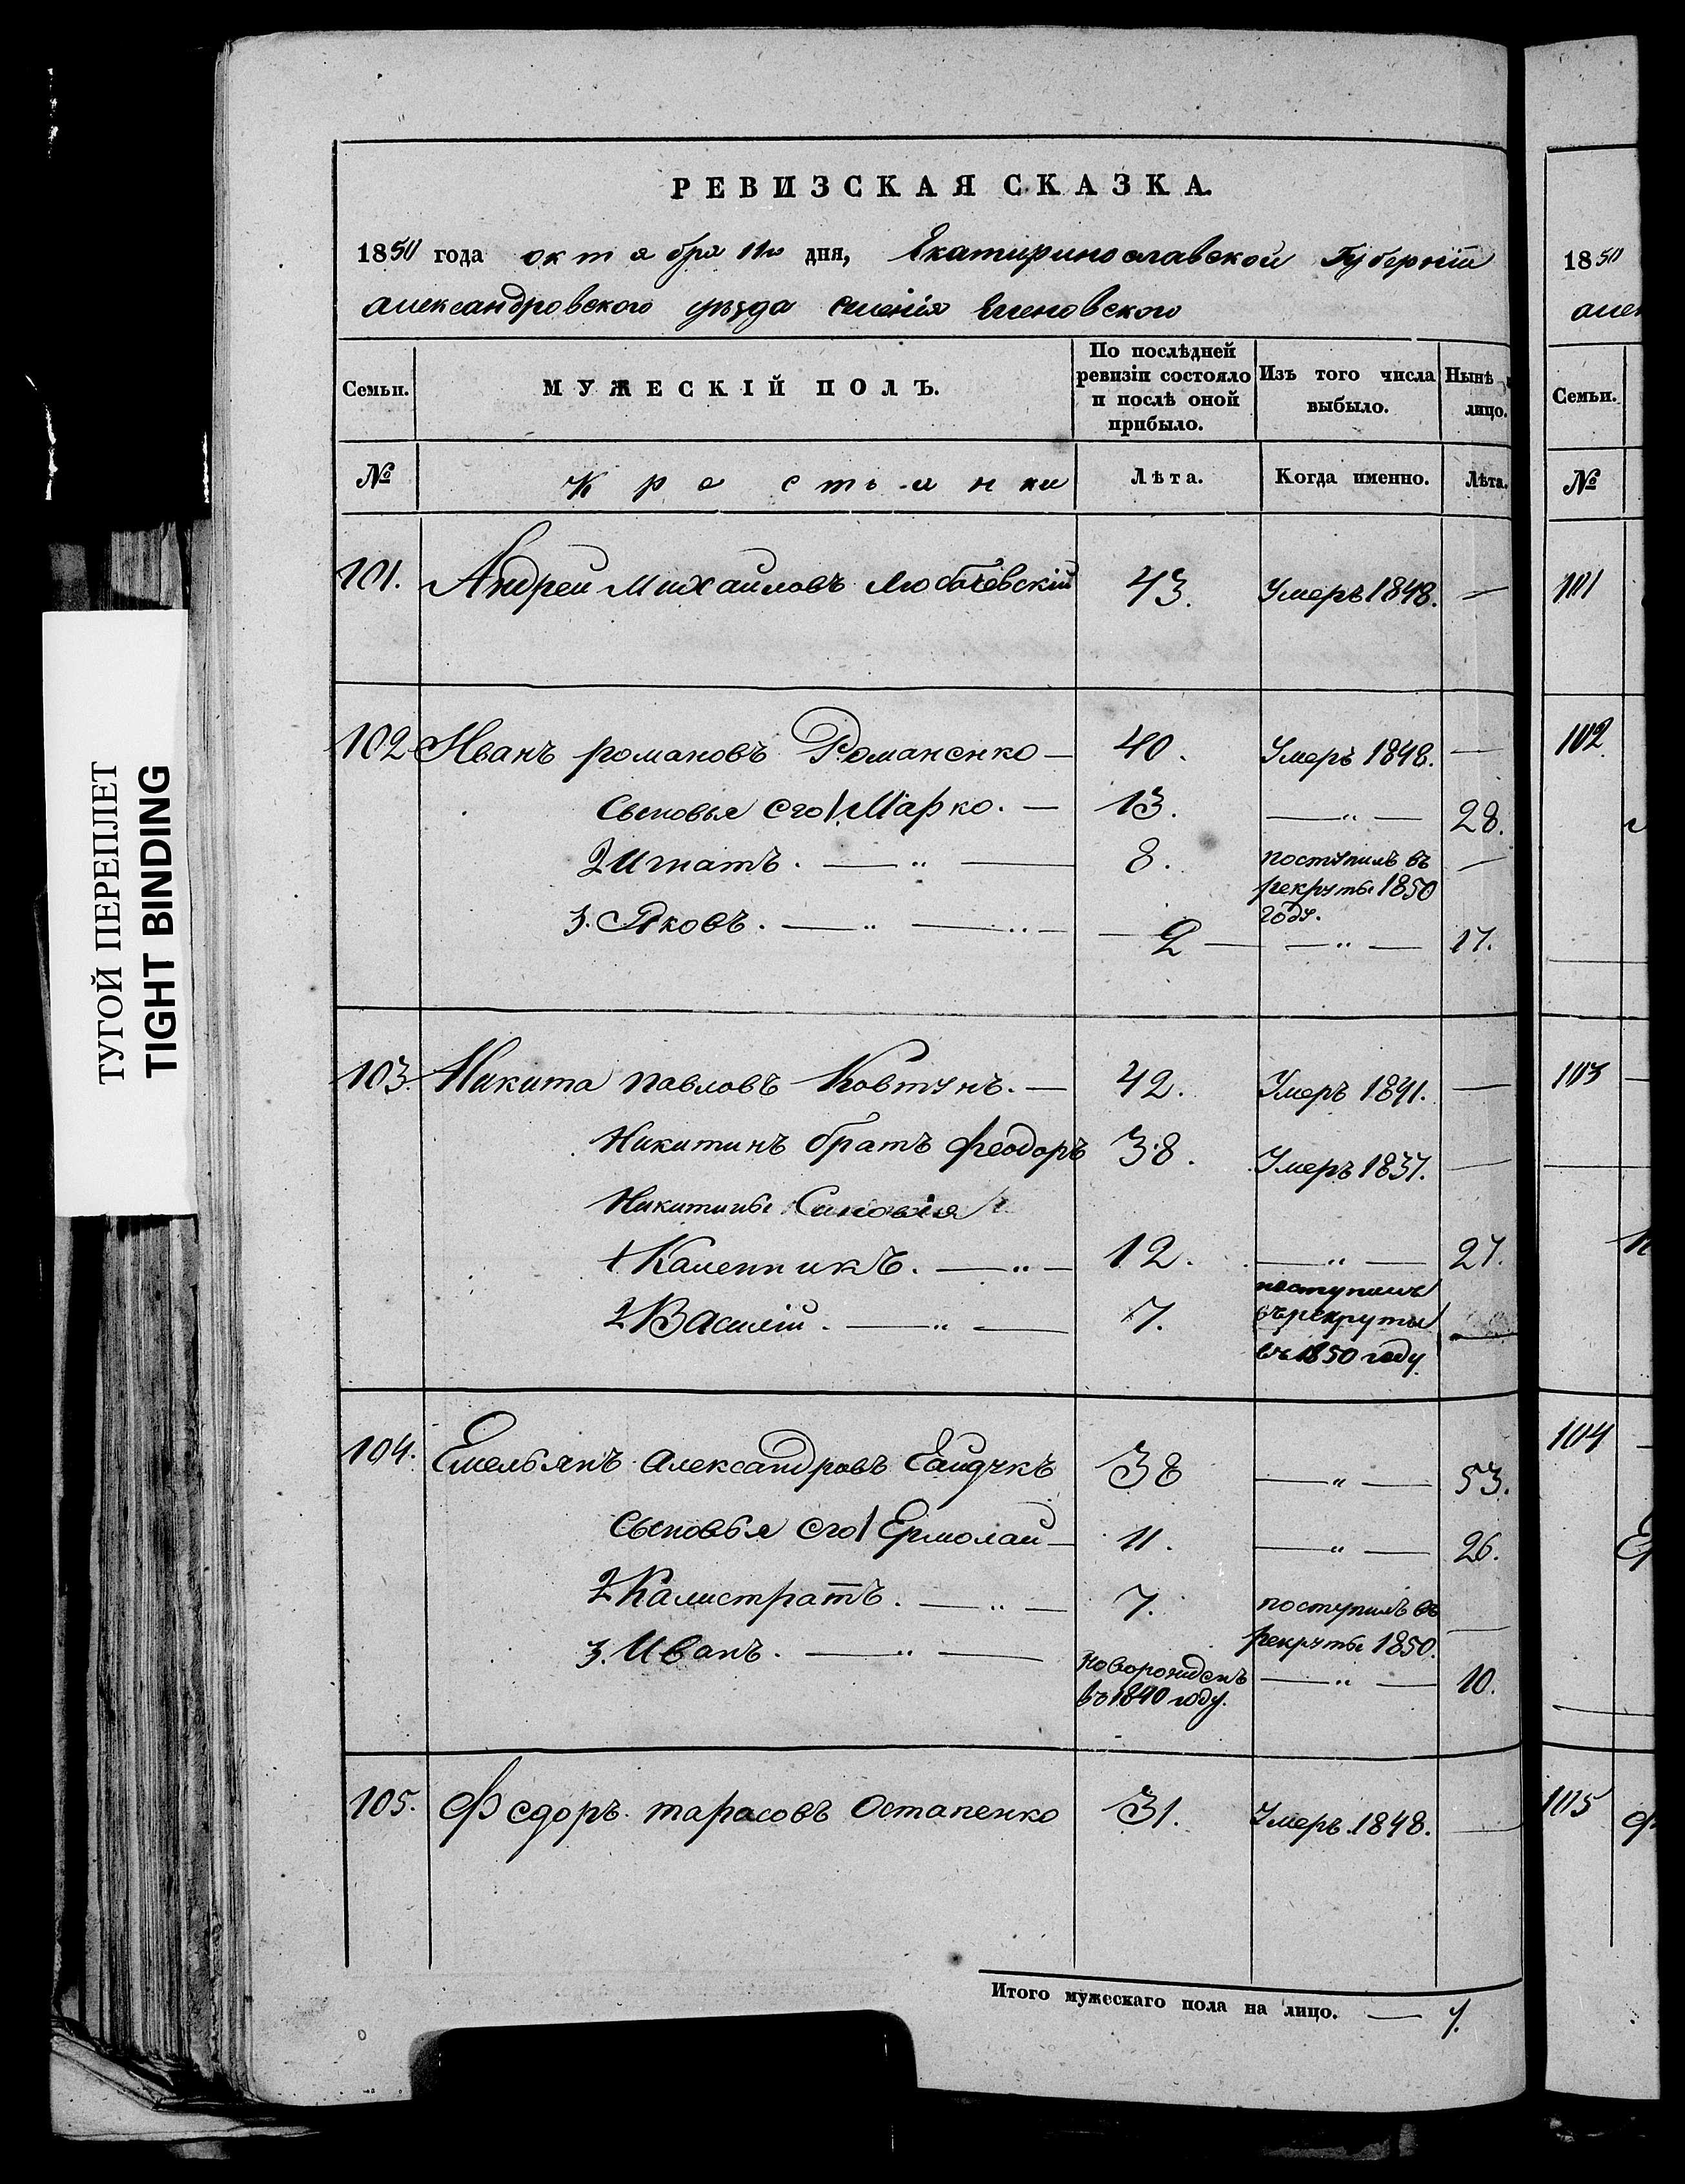 РЕВИЗСКАЯ СКАЗКА.
1850 года октября 11го дня, Екатеринославской Губерніи
александровского уѣзда селенія Еленовского
Семьи.
МУЖЕСКІЙ ПОЛЪ.
По послѣдней ревизіи состояло и послѣ оной прибыло.
Изъ того числа выбыло.
Нынѣ лицо.
№
Крестьянки
Лѣта.
Когда именно.
Лѣта.
101. Андреи Михаиловъ Любочевскій 43. Умеръ 1848. —
102 Иванъ романовъ Романенко — 40. Умеръ 1848. —
Сыновья его 1 Марко. — 13. —„— 28.
2 Игнатъ. —„— 8. поступилъ въ —
рекруты 1850
году.
3. Яковъ. —„—„— 2 —„— 17.
103. Никита павловъ Ковтунъ. — 42. Умеръ 1841. —
Никитинъ братъ феодоръ 38. Умеръ 1837. —
Никитины Синовія
1 Каленникъ. —„— 12. —„— 27.
2 Василіи. —„— 7. поступилъ
въ рекруты —
въ 1850 году.
104. Емельянъ Александровъ 38 —„— 53.
Сыновья его 1 Ермолаи — 11. —„— 26.
2 Калистратъ. —„— 7. поступилъ въ
рекруты 1850. —
3. Иванъ. —„— новорожденъ —„— 10.
въ 1840 году.
105. Федоръ тарасовъ Остапенко 31. Умеръ 1848. —
Итого мужескаго пола на лицо. — 7.
ТУГОЙ ПЕРЕПЛЕТ
TIGHT BINDING
1850
Семьи.
№
101
102
103
104
105